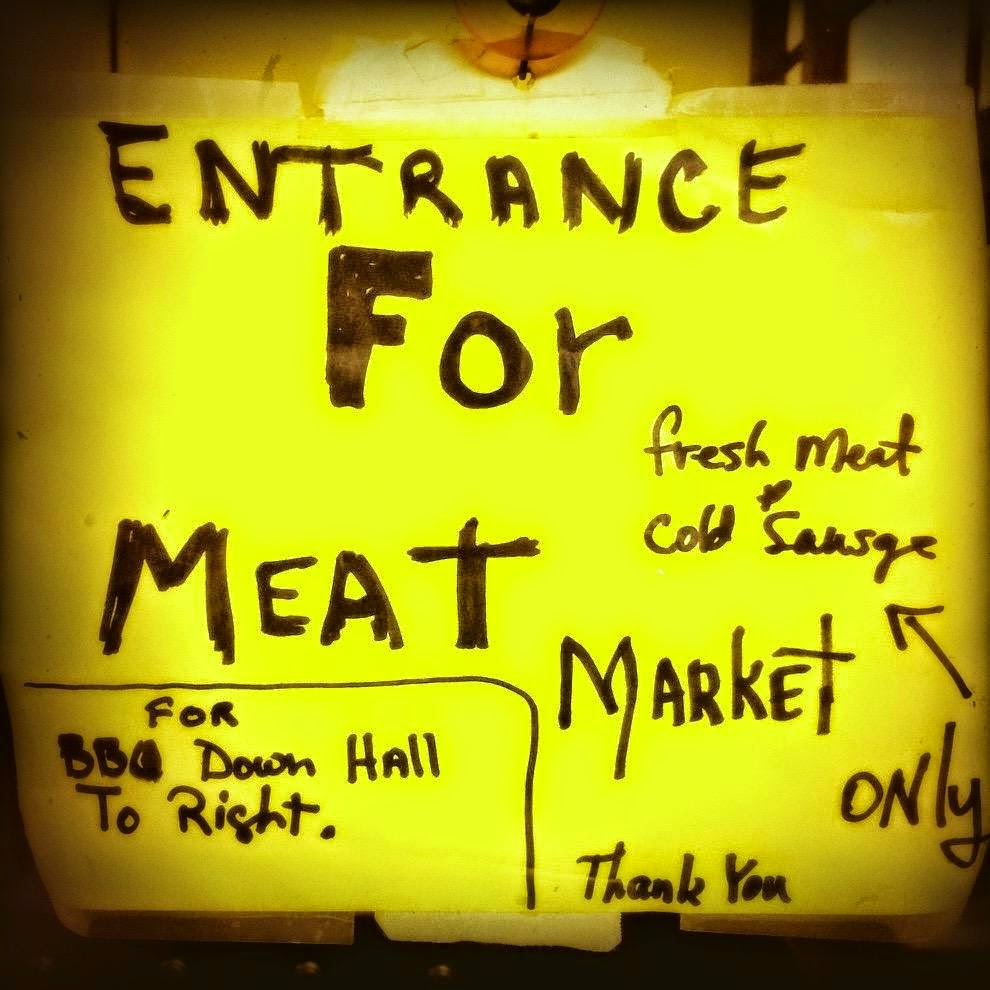 ENTRANCE
For
fresh Meat
&
Cold Sausge
MEAT
MARKET
ONly
FOR
BBQ Down Hall
To Right.
Thank You